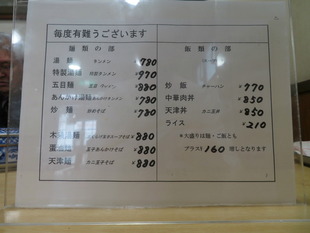 毎度有難うございます
麺類の部
湯麺 タンメン ¥780
特製湯麺 特製タンメン ¥970
五目麺 ¥880
あんかけ湯麺 ¥780
炒麺 ¥780
¥880
蛋 玉子あんかけそば ¥880
天津麺 カニ玉そば ¥880
飯類の部
炒飯 チャーハン ¥770
中華肉丼 ¥850
天津丼 カニ玉丼 ¥850
ライス ¥210
*大盛りは麺・ご飯とも
プラス¥160増しとなります